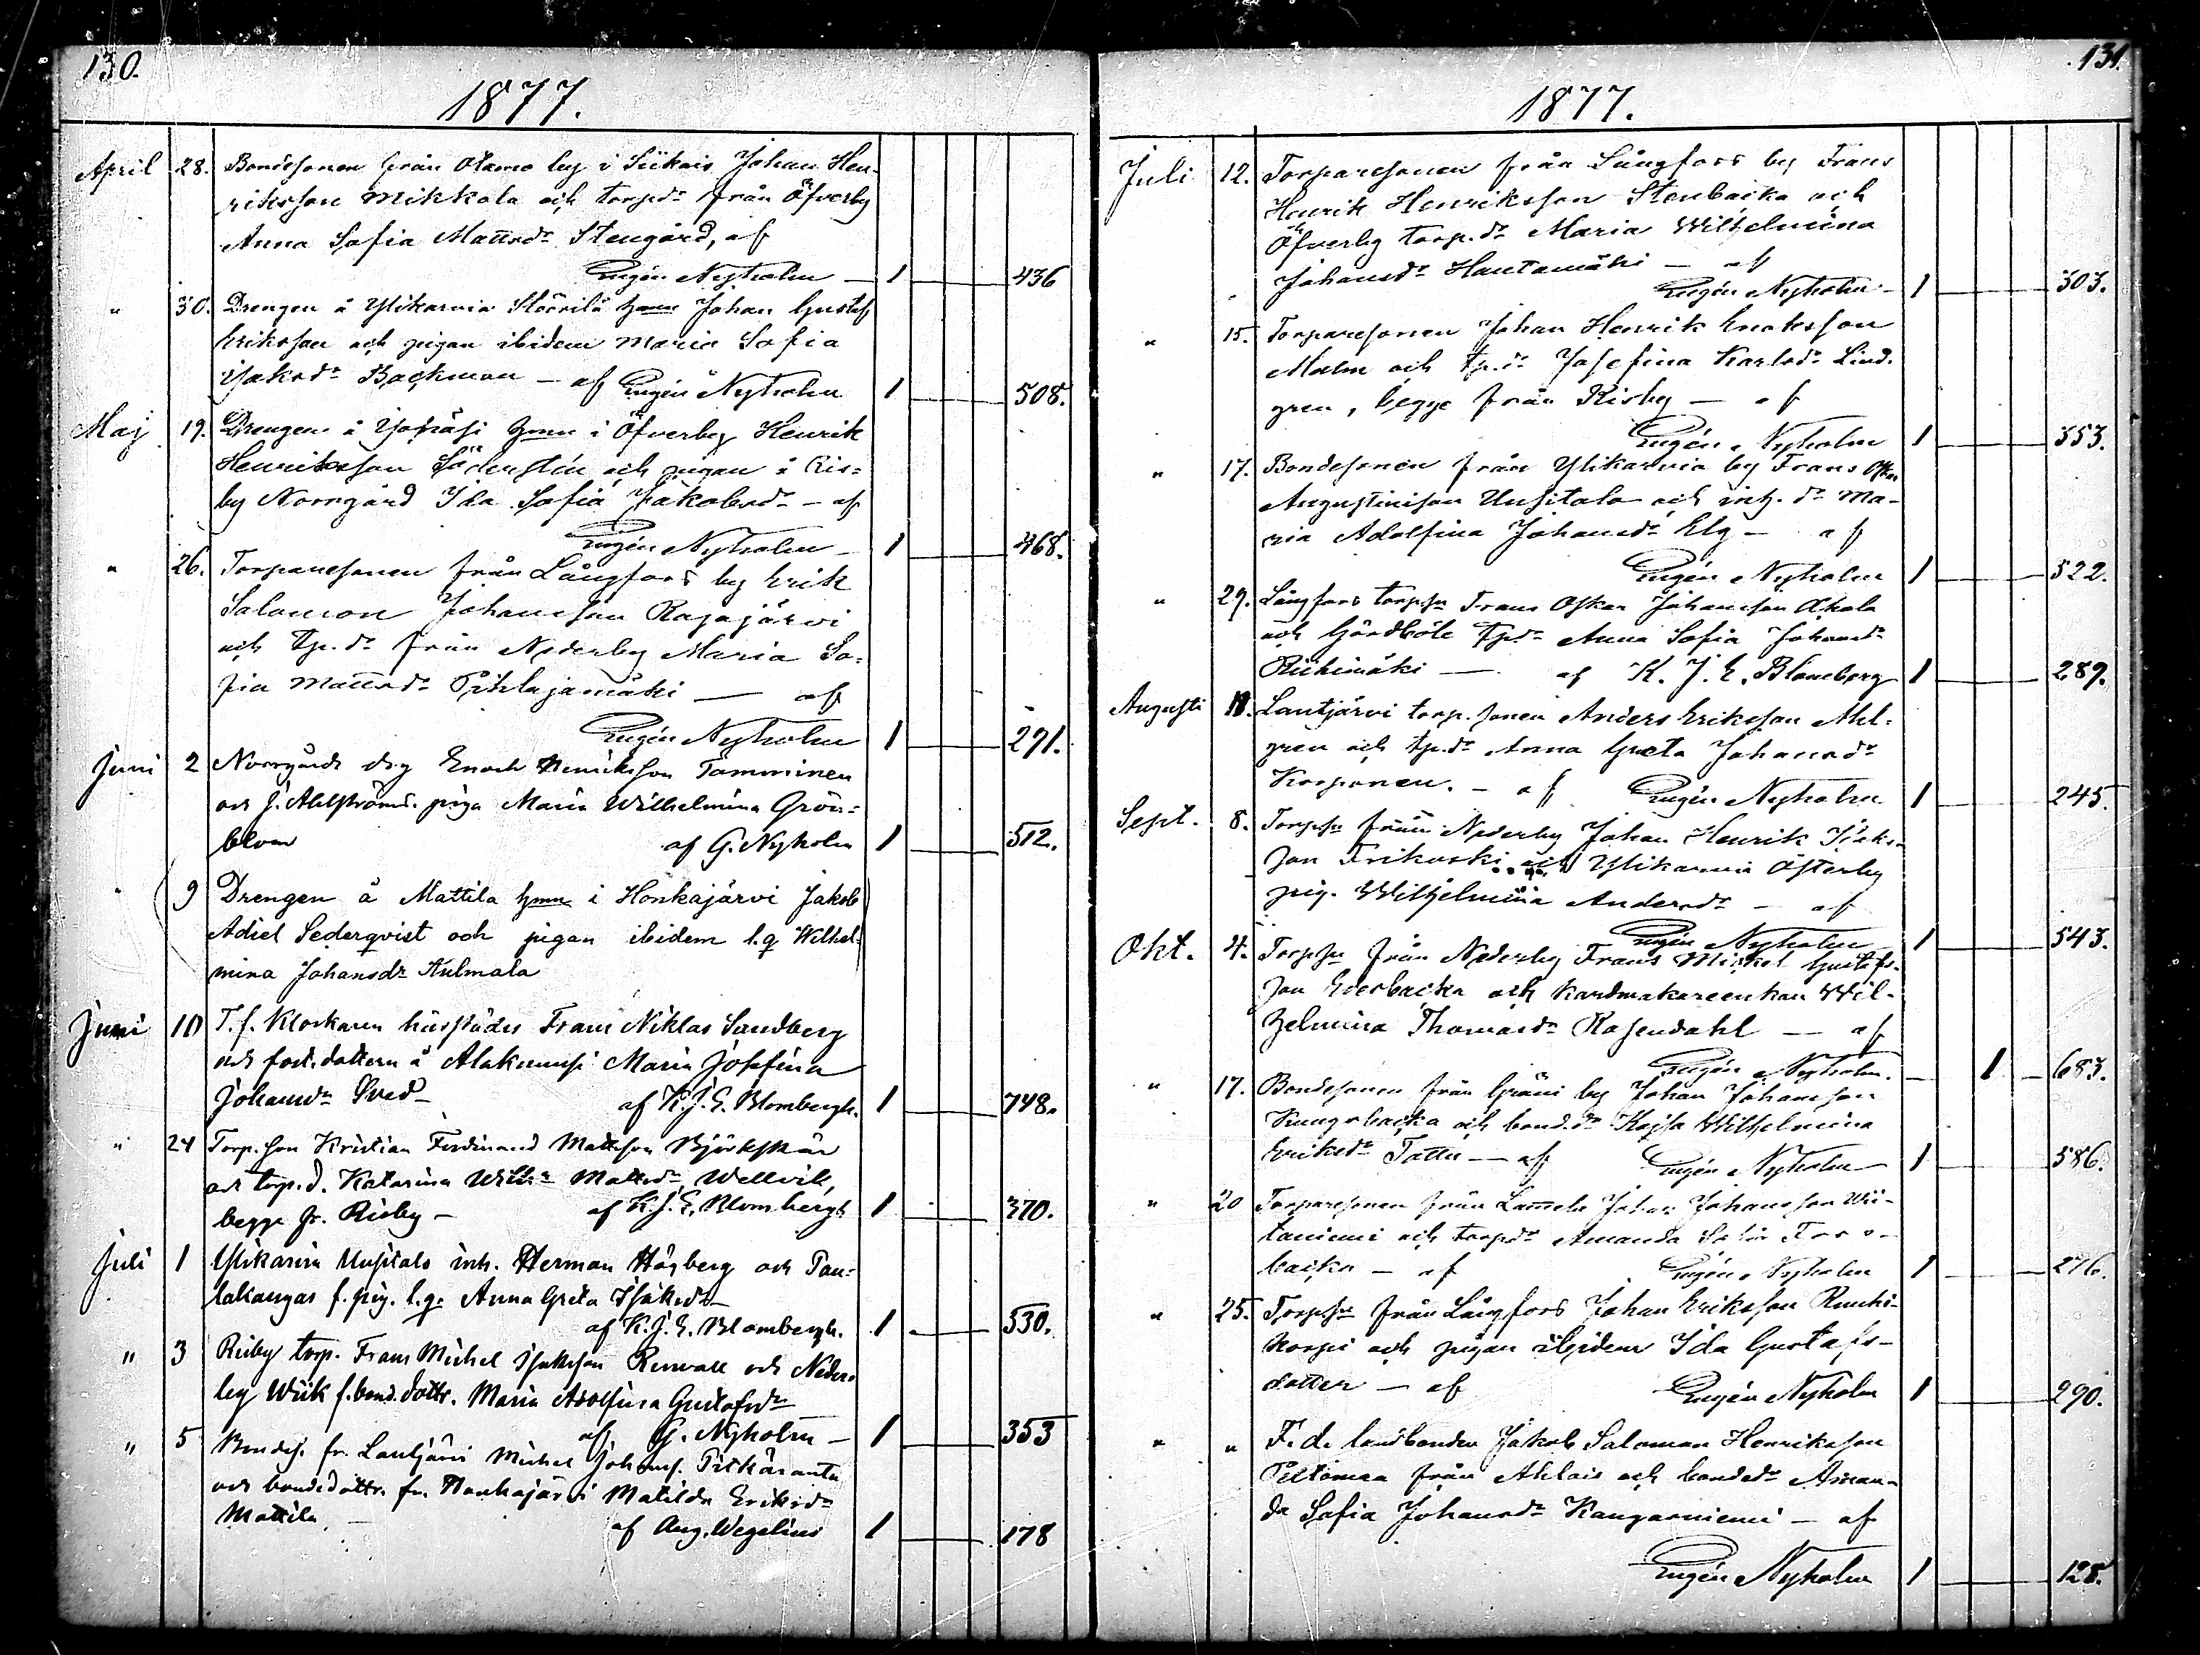 130.
1877.
April 28. Bondesonen från Otamo by i Siikais Johan Hen-
riksson Mikkola och torpdr från Öfverby
Anna Sofia Mattsdr Stengård, af
Eugén Nyholm — 1 436
" 30. Drengen å Ylikarvia hmn Johan Gustaf
Eriksson och pigan ibidem Maria Sofia
Isaksdr Backman — af Eugén Nyholm 1 508.
Maj 19. Drengen å hmn i Öfverby Henrik
Henriksson Söderström och pigan å Ris=
by Norrgård Ida Sofia Jakobsdr — af
Eugén Nyholm — 1 468.
" 26. Torparesonen från Långfors by Erik
Salomon Johansson Rajajärvi
och tp.dr från Nederby Maria So-
fia Mattsdr Pihlajamäki — af
Eugén Nyholm 1 291.
Juni 2 Norrgårds drg Enoch Henriksson Tamminen
och J. Ahlströms piga Maria Wilhelmina Grön=
blom af G. Nyholm 1 512.
" 9 Drengen å Mattila hmn i Honkajärvi Jakob
Adiel Sederqvist och pigan ibidem l.q Wilhel-
mina Johansdr Kulmala
Juni 10 T.f. Klockaren Frans Niklas Sandberg
och fost.dottern å Maria Josefina
Johansdr af K.J.E. Blombergh. 1 748.
" 24 Torp.son Kristian Ferdinand Mattsson Björkskär
och torp.d. Katarina Wilh:a Mattsdr Wellvik,
begge fr. Risby — af K.J.E. Blombergh 1 370.
Juli 1 Ylikarvia Uusitalo inh. Herman Högberg och Pau=
lakangas f. pig. l.q. Anna Greta Isaksdr —
af K.J.E. Blombergh. 1 530.
" 3 Risby torp. Frans Michel Isaksson Renvall och Neder-
by Wiik f. bond.dottr. Maria Adolfina Gustafsdr
af G. Nyholm — 1 353
" 5 Bondes. fr. Lautjärvi Michel Johans. Pitkäranta
och bondedottr. fr. Honkajärvi Matilda Eriksdr
Mattila — af Aug. Wegelius 1 178
131.
1877.
Juli 12. Torparesonen från Långfors by Frans
Henrik Henriksson Stenbacka och
Öfverby torp.dr Maria Wilhelmina
Johansdr Hautamäki — af
Eugén Nyholm — 1 303.
" 15. Torparesonen Johan Henrik Enoksson
Malm och tp.dr Josefina Karlsdr Lind-
gren, begge från Risby — af
Eugén Nyholm 1 353.
" 17. Bondesonen från Ylikarvia by Frans Oskar
Augustinison Uusitalo och inh. dr Ma-
ria Adolfina Johansdr Elg — af
Eugén Nyholm 1 522.
" 29. Långfors torpsn Frans Oskar Johansson Ahola
och Gårdböle tpdr Anna Sofia Johansdr
Riihimäki — af K. J. E. Blomberg 1 289.
Augusti Lautjärvi torp.sonen Anders Eriksson Ahl-
gren och tp.dr Anna Greta Johansdr
Korponen. — af Eugén Nyholm 1 245.
Sept. 8. Torpsn från Nederby Johan Henrik Isaks-
son och Ylikarvia Österby
pig. Wilhelmina Andersdr — af
Eugén Nyholm 1 543.
Okt. 4. Torpsn från Nederby Frans Mickel Gustafs-
son och kardmakareenkan Wil-
helmina Thomasdr Rosendahl — af
Eugén Nyholm. — 1 683.
" 17. Bondesonen från by Johan Johansson
Kungsbacka och bond.dr Kajsa Wilhelmina
Eriksdr Tattu — af Eugén Nyholm 1 586.
" 20 Torparesonen från Lammela Johan Johansson Wii-
taniemi och torpdr Amanda Sofia
backa — af Eugén Nyholm 1 276.
" 25. Torpsn från Långfors Johan Eriksson Ruuhi-
korpi och pigan ibidem Ida Gustafs-
dotter — af Eugén Nyholm 1 290.
" " F. d. landbonden Jakob Salomon Henriksson
Peltomaa från Ahlais och bondedr Aman-
da Sofia Johansdr Kangasniemi — af
Eugén Nyholm 1 128.